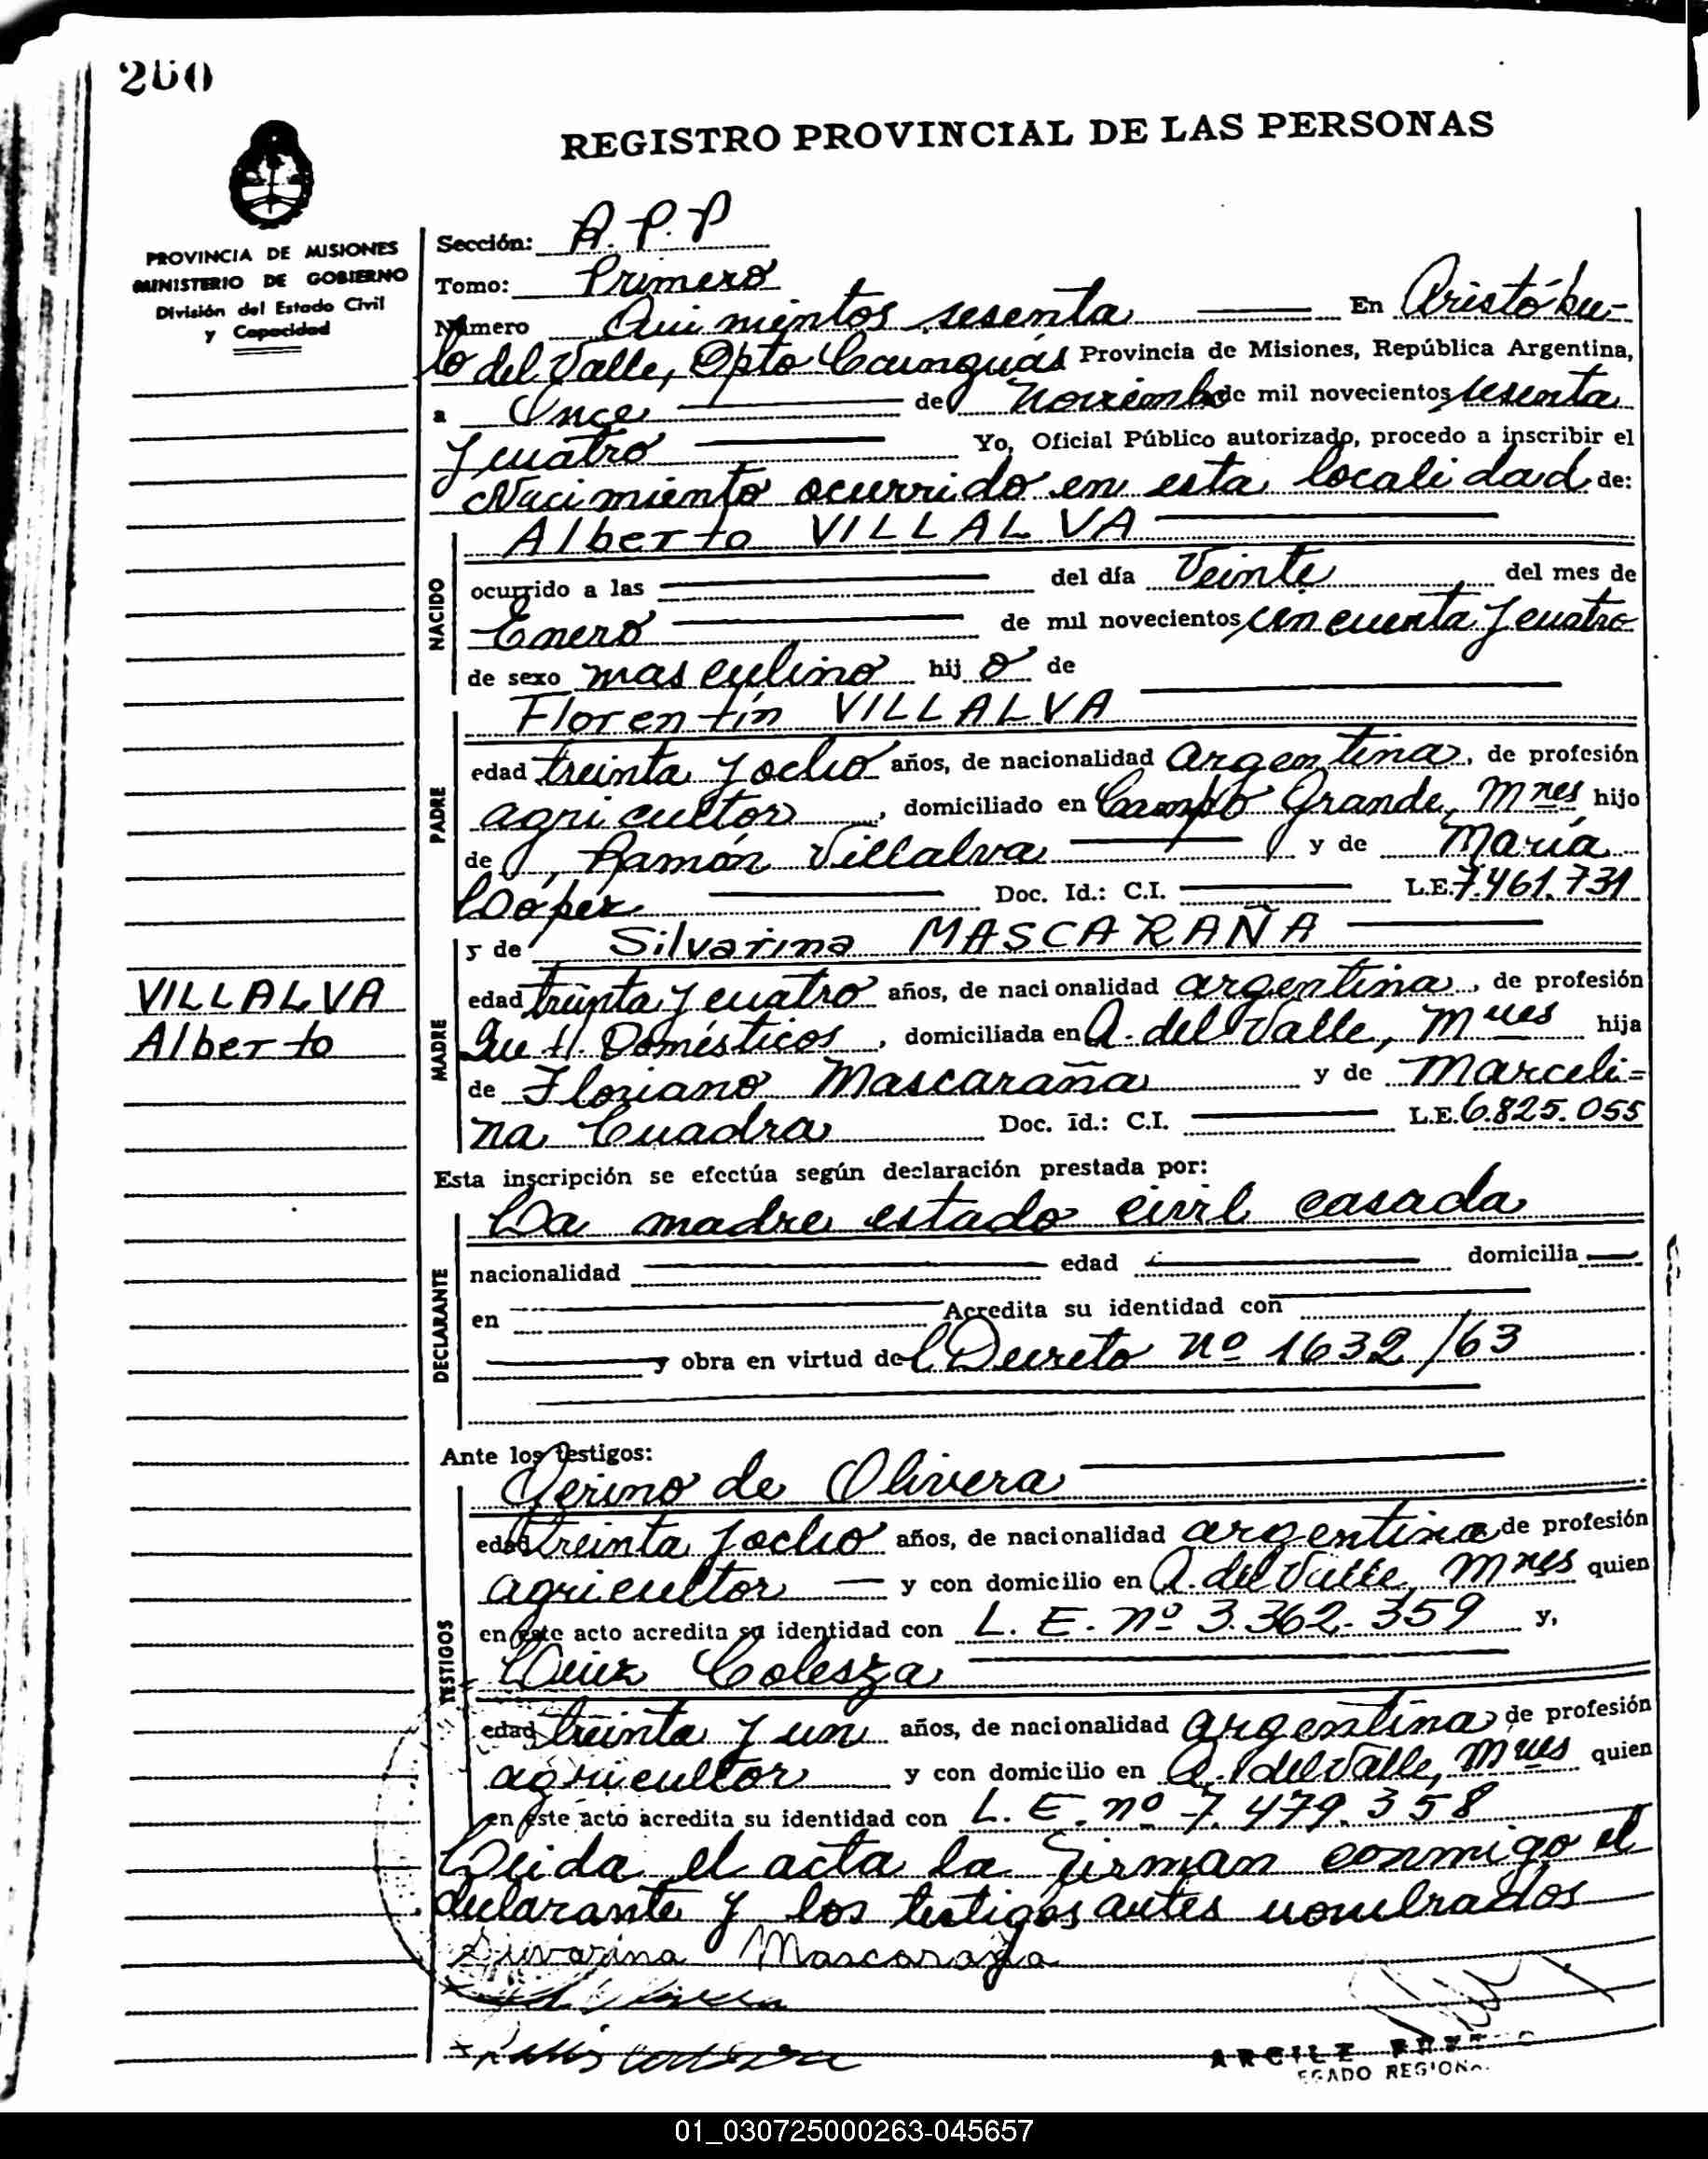 260
REGISTRO PROVINCIAL DE LAS PERSONAS
PROVINCIA DE MISIONES
MINISTERIO DE GOBIERNO
División del Estado Civil
y Capacidad
Sección: A.P.P
Tomo: Primero
Número Quinientos sesenta En Aristóbu-
lo del Valle, Dpto Cainguás Provincia de Misiones, República Argentina,
a Once de Noviembre de mil novecientos sesenta
y cuatro Yo, Oficial Público autorizado, procedo a inscribir el
Nacimiento ocurrido en esta localidad de:
NACIDO
Alberto VILLALVA
ocurrido a las del día Veinte del mes de
Enero de mil novecientos cincuenta y cuatro
de sexo masculino hijo de
PADRE
Florentín VILLALVA
edad treinta y ocho años, de nacionalidad Argentina, de profesión
agricultor, domiciliado en Campo Grande, Mnes hijo
de Ramón Villalva y de María
López Doc. Id.: C.I. L.E. 7.461.731
VILLALVA
Alberto
MADRE
y de Silvarina MASCARAÑA
edad treinta y cuatro años, de nacionalidad argentina, de profesión
Qu H. Domésticos, domiciliada en A. del Valle, Mnes hija
de Floriano Mascaraña y de Marceli=
na Cuadra Doc. id.: C.I. L.E. 6.825.055
Esta inscripción se efectúa según declaración prestada por:
DECLARANTE
La madre estado civil casada
nacionalidad edad domicilia
en Acredita su identidad con
y obra en virtud del Decreto nº 1632/63
Ante los testigos:
TESTIGOS
Gerino de Olivera
edad treinta y ocho años, de nacionalidad argentina de profesión
agricultor y con domicilio en A. del Valle, Mnes quien
en este acto acredita su identidad con L. E. nº 3.362.359 y,
Luiz Colesza
edad treinta y un años, de nacionalidad argentina de profesión
agricultor y con domicilio en A. del Valle, Mnes quien
en este acto acredita su identidad con L. E. nº 7.479.358
Leida el acta la firman conmigo el
declarante y los testigos antes nombrados
Silvarina Mascaraña
01_030725000263-045657